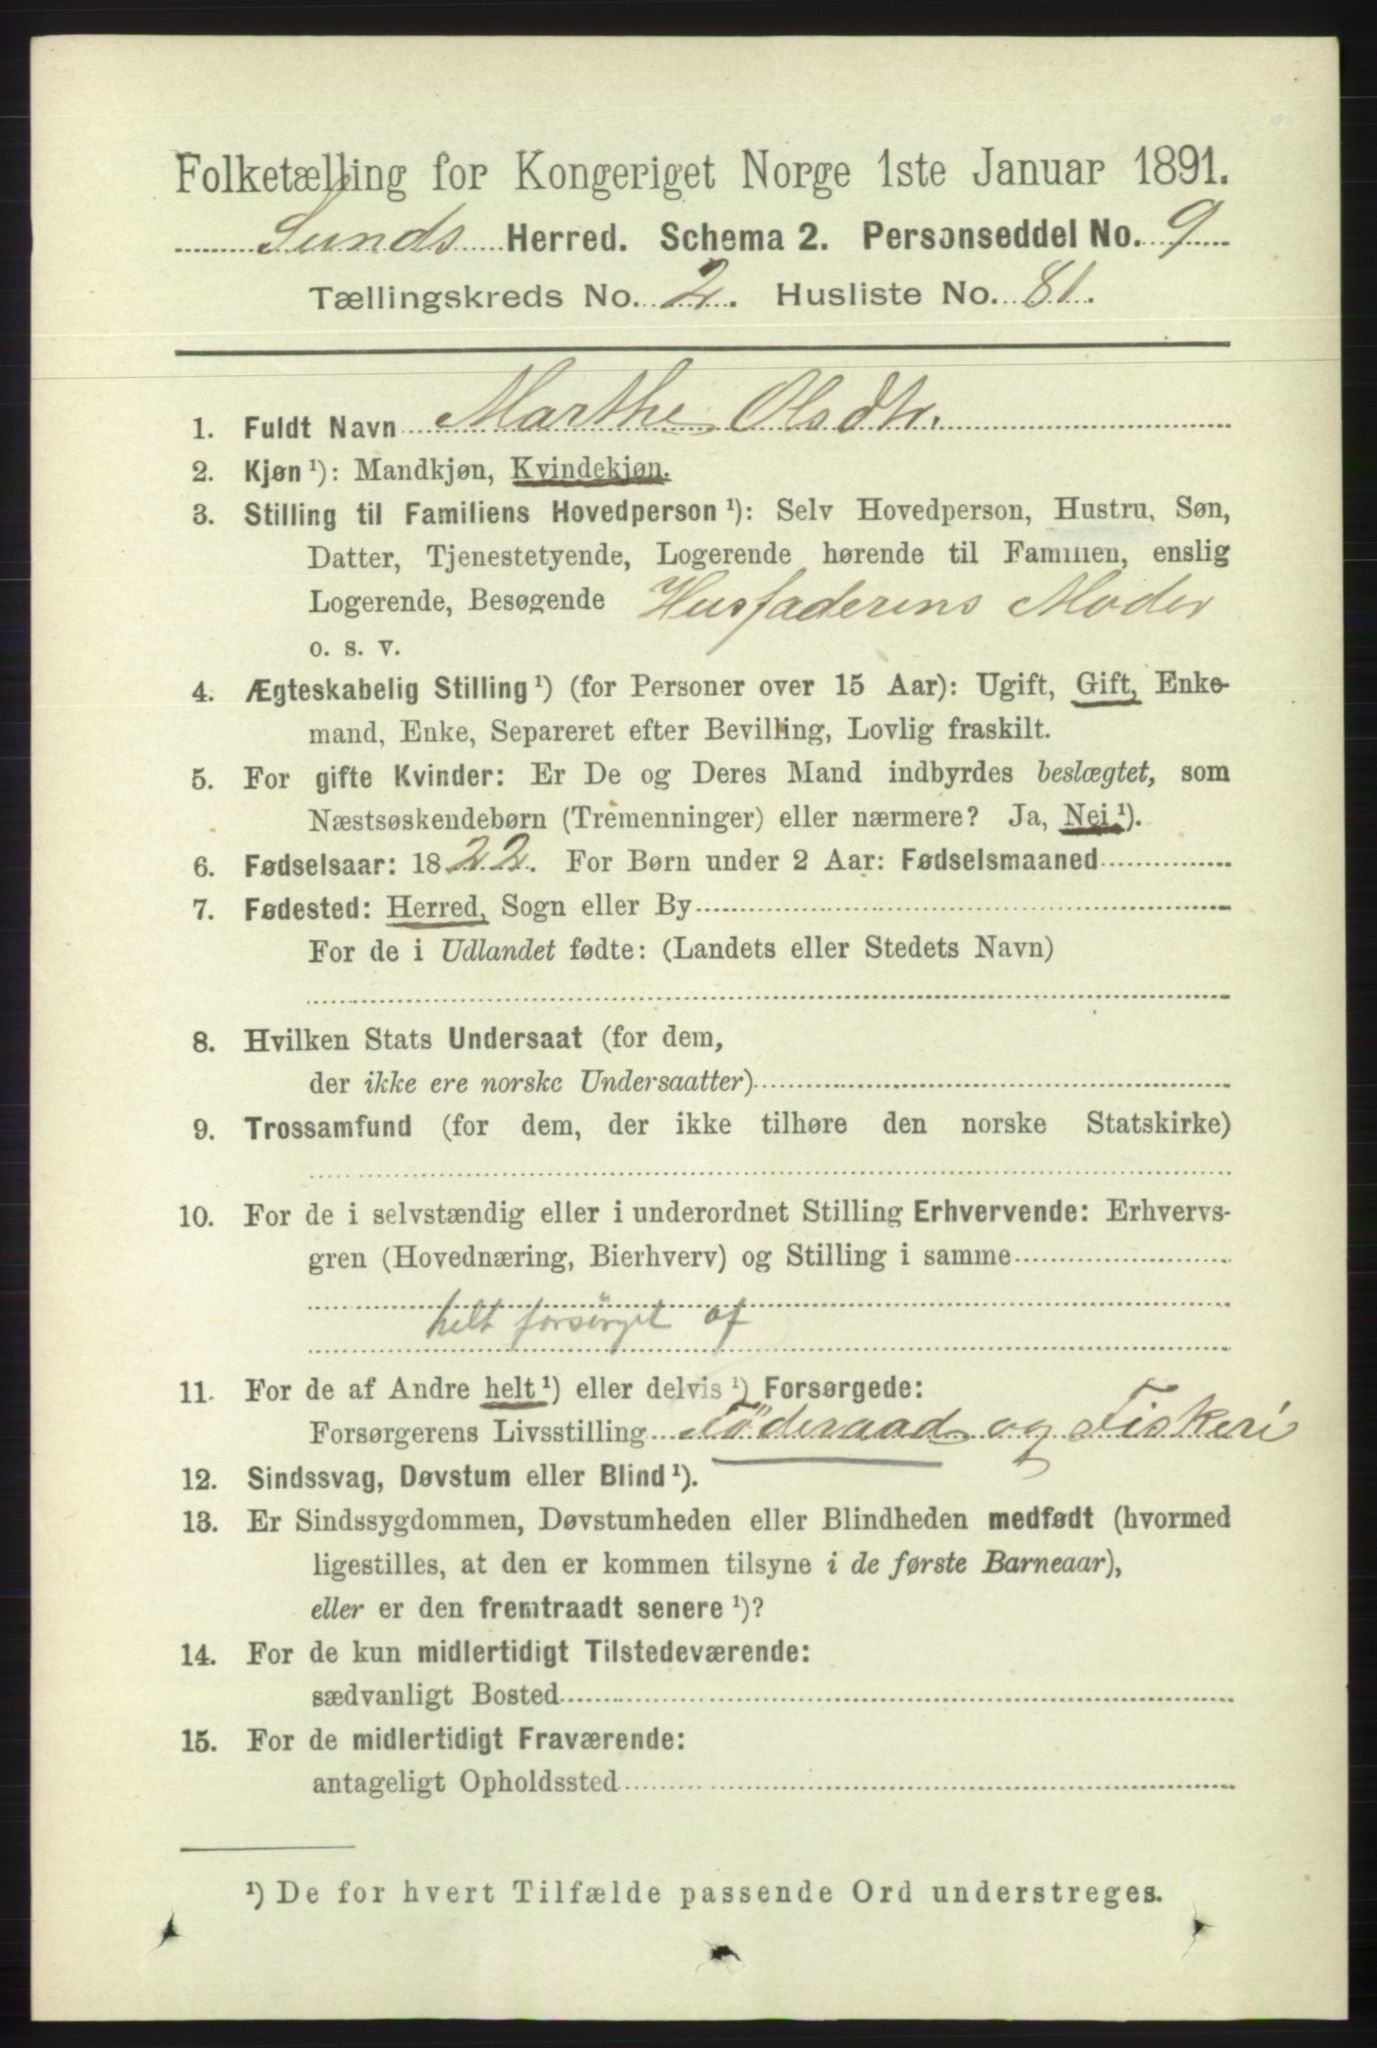 Folketælling for Kongeriget Norge 1ste Januar 1891.
Sunds Herred. Schema 2. Personseddel No. 9
Tællingskreds No. 2. Husliste No. 81.
1. Fuldt Navn Marthe Olsdtr.
2. Kjøn¹): Mandkjøn, Kvindekjøn.
3. Stilling til Familiens Hovedperson¹): Selv Hovedperson, Hustru, Søn,
Datter, Tjenestetyende, Logerende hørende til Familien, enslig
Logerende, Besøgende Husfaderens Moder
o. s. v.
4. Ægteskabelig Stilling¹) (for Personer over 15 Aar): Ugift, Gift, Enke-
mand, Enke, Separeret efter Bevilling, Lovlig fraskilt.
5. For gifte Kvinder: Er De og Deres Mand indbyrdes beslægtet, som
Næstsøskendebørn (Tremenninger) eller nærmere? Ja, Nei¹).
6. Fødselsaar: 1822. For Børn under 2 Aar: Fødselsmaaned
7. Fødested: Herred, Sogn eller By
For de i Udlandet fødte: (Landets eller Stedets Navn)
8. Hvilken Stats Undersaat (for dem,
der ikke ere norske Undersaatter)
9. Trossamfund (for dem, der ikke tilhøre den norske Statskirke)
10. For de i selvstændig eller i underordnet Stilling Erhvervende: Erhvervs-
gren (Hovednæring, Bierhverv) og Stilling i samme
helt forsörget af
11. For de af Andre helt¹) eller delvis¹) Forsørgede:
Forsørgerens Livsstilling Föderaad og Fiskeri
12. Sindssvag, Døvstum eller Blind¹).
13. Er Sindssygdommen, Døvstumheden eller Blindheden medfødt (hvormed
ligestilles, at den er kommen tilsyne i de første Barneaar),
eller er den fremtraadt senere¹)?
14. For de kun midlertidigt Tilstedeværende:
sædvanligt Bosted
15. For de midlertidigt Fraværende:
antageligt Opholdssted
¹) De for hvert Tilfælde passende Ord understreges.